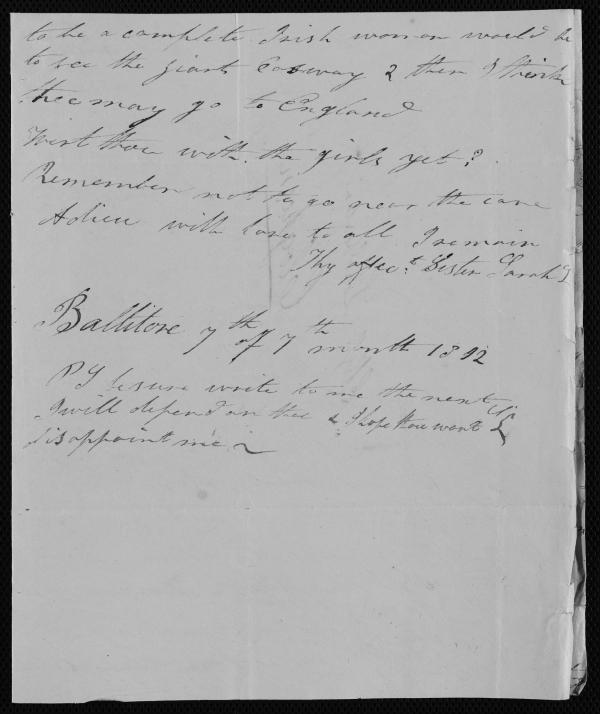 to be a complete Irish woman would be
to see the giants Cosway & then I think
thee may go to England
Wert thou with the girls yet?
Remember not to go near the cave
Adieu with love to all I remain
Thy affect. Sister Sarah
Ballitore 7th of 7th month 1812
PS be sure write to me the next
I will depend on thee & I hope thou wont
disappoint me